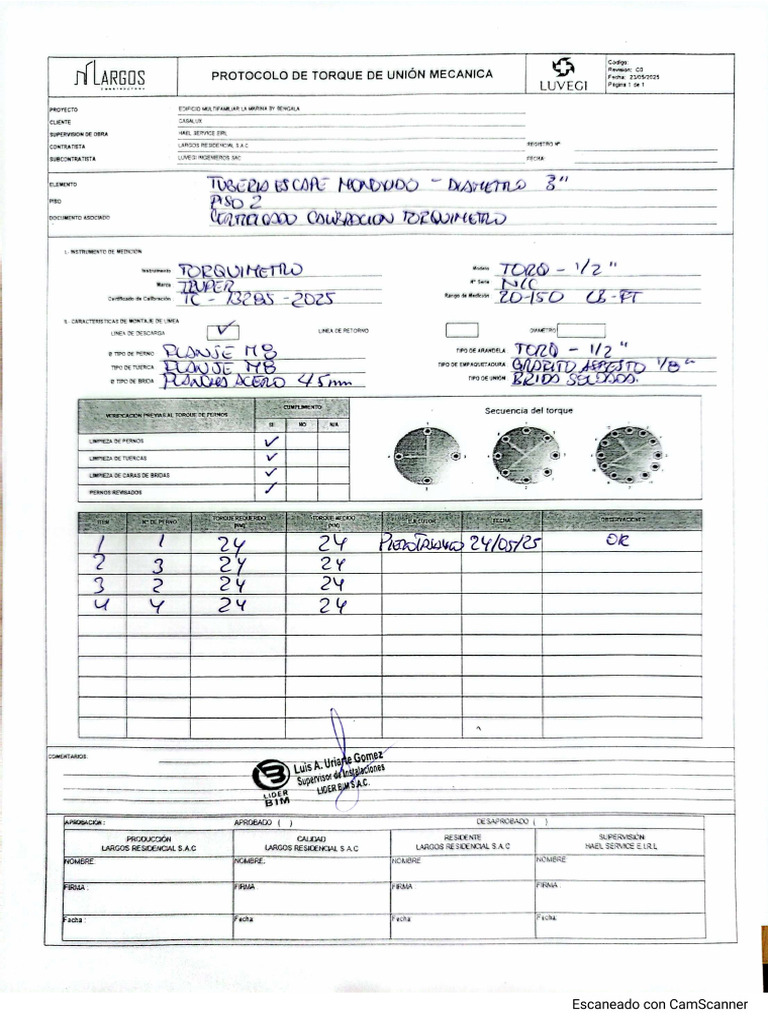 LARGOS
CONSTRUCTORA
PROTOCOLO DE TORQUE DE UNIÓN MECANICA
LUVEGI
Codigo:
Revision: 00
Fecha: 23/05/2025
Página 1 de 1
PROYECTO EDIFICIO MULTIFAMILIAR LA MARINA BY BENGALA
CLIENTE CASALUX
SUPERVISION DE OBRA HAEL SERVICE EIRL
CONTRATISTA LARGOS RESIDENCIAL S.A.C REGISTRO Nº
SUBCONTRATISTA LUVEGI INGENIEROS SAC FECHA:
ELEMENTO TUBERIA ESCAPE MONOXIDO - DIAMETRO 3"
PISO PISO 2
DOCUMENTO ASOCIADO CERTIFICADO CALIBRACION TORQUIMETRO
1. INSTRUMENTO DE MEDICIÓN
Instrumento TORQUIMETRO Modelo TORQ - 1/2"
Marca TRUPER Nº Serie N/C
Certificado de Calibración TC - 13285 - 2025 Rango de Medición 20-150 LB-FT
CARACTERISTICAS DE MONTAJE DE LINEA
LINEA DE DESCARGA ✓ LINEA DE RETORNO DIAMETRO
Ø TIPO DE PERNO M8 TIPO DE ARANDELA TORQ - 1/2"
TIPO DE TUERCA M8 TIPO DE EMPAQUETADURA GRAFITO ASBESTO 1/8"
Ø TIPO DE BRIDA PLANCHA ACERO 4.5mm TIPO DE UNIÓN BRIDA SOLDADA.
VERIFICACION PREVIAS AL TORQUE DE PERNOS CUMPLIMIENTO
SI NO N/A
LIMPIEZA DE PERNOS ✓
LIMPIEZA DE TUERCAS ✓
LIMPIEZA DE CARAS DE BRIDAS ✓
PERNOS REVISADOS ✓
Secuencia del torque
ITEM Nº DE PERNO TORQUE REQUERIDO TORQUE MEDIDO EJECUTOR FECHA OBSERVACIONES
1 1 24 24 24/05/25 OK
2 3 24 24
3 2 24 24
4 4 24 24
COMENTARIOS:
LIDER BIM
Luis A. Uriarte Gomez
Supervisor de Instalaciones
LIDER BIM S.A.C.
APROBACIÓN : APROBADO ( ) DESAPROBADO ( )
PRODUCCIÓN CALIDAD RESIDENTE SUPERVISIÓN
LARGOS RESIDENCIAL S.A.C LARGOS RESIDENCIAL S.A.C LARGOS RESIDENCIAL S.A.C HAEL SERVICE E.I.R.L
NOMBRE: NOMBRE: NOMBRE NOMBRE
FIRMA : FIRMA FIRMA FIRMA :
Fecha : Fecha Fecha Fecha
Escaneado con CamScanner